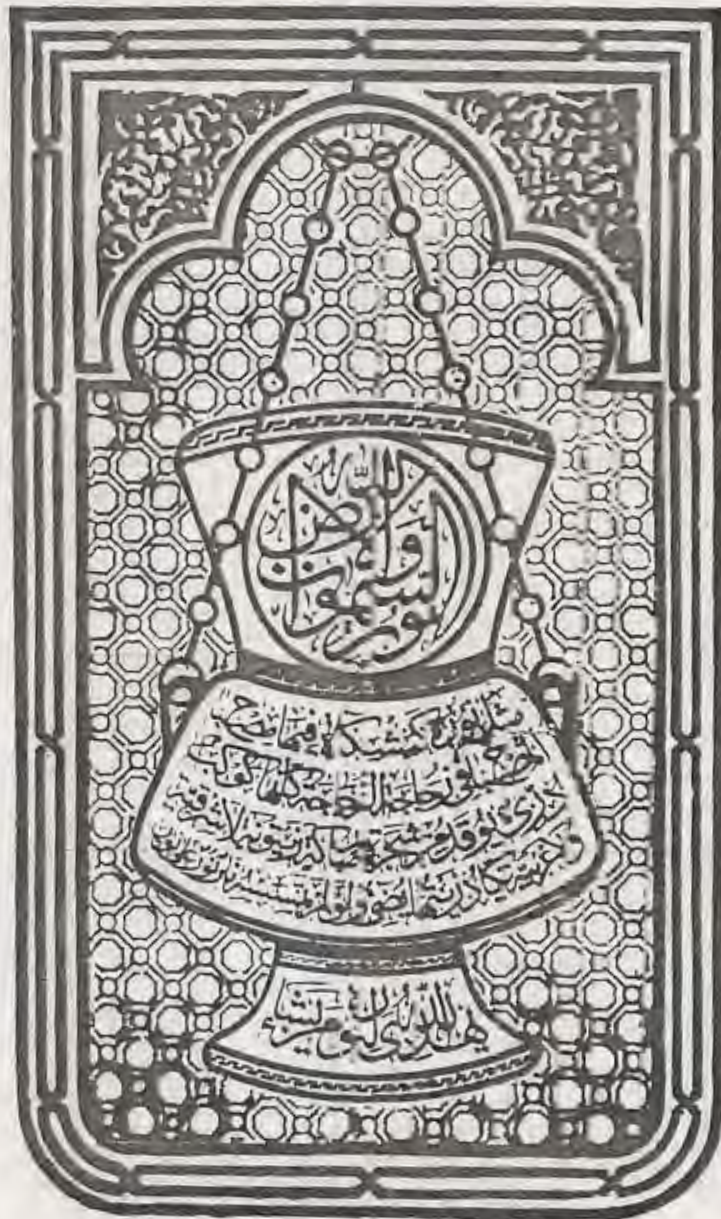 الله نور السموات والأرض
مثل نوره كمشكاة فيها مصباح
المصباح في زجاجة الزجاجة كأنها كوكب
دري يوقد من شجرة مباركة زيتونة لا شرقية
ولا غربية يكاد زيتها يضيء ولو لم تمسسه نار نور على نور
يهدي الله لنوره من يشاء